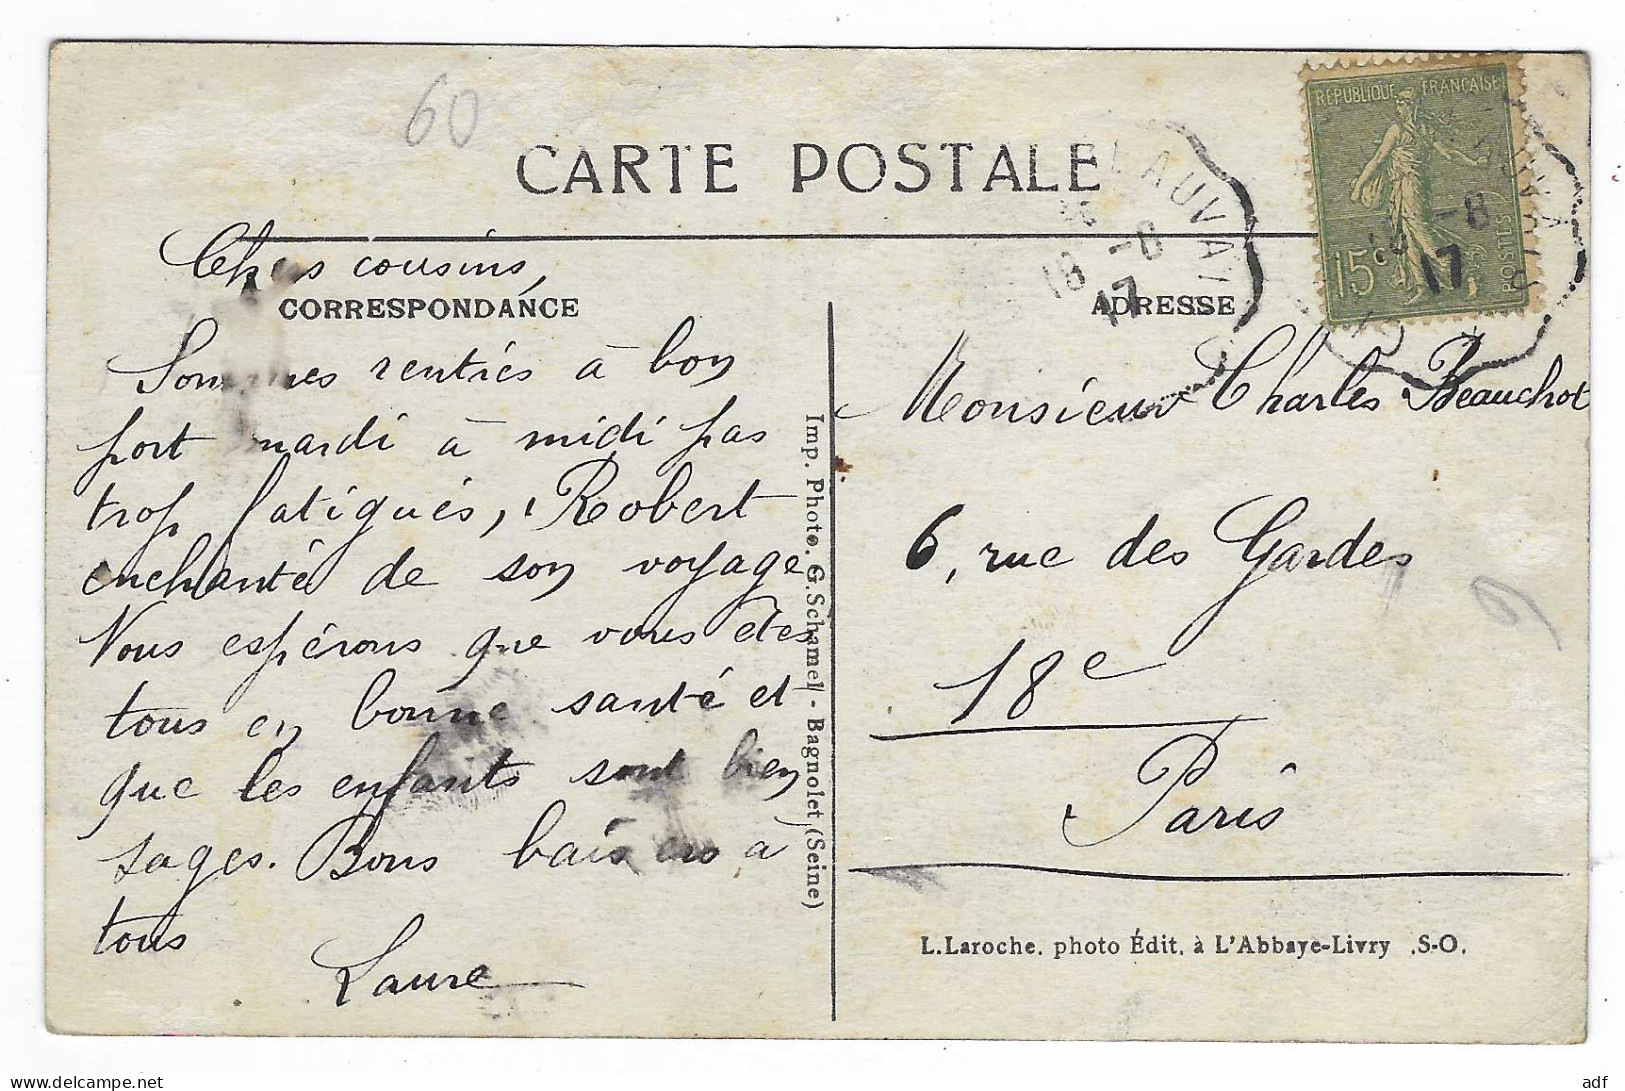 60
CARTE POSTALE
RÉPUBLIQUE FRANÇAISE
15c
POSTES
18 -8
17
-8
17
Chers cousins,
CORRESPONDANCE
ADRESSE
Sommes rentrés à bon
port mardi à midi pas
trop fatigués, Robert
enchanté de son voyage
Nous espérons que vous êtes
tous en bonne santé et
que les enfants sont bien
sages. Bons baisers à
tous
Laure
Imp. Photo. G. Schamel - Bagnolet (Seine)
Monsieur Charles Beauchot
6, rue des Gardes
18e
Paris
L. Laroche. photo Édit. à L'Abbaye-Livry .S-O.
adf
www.delcampe.net